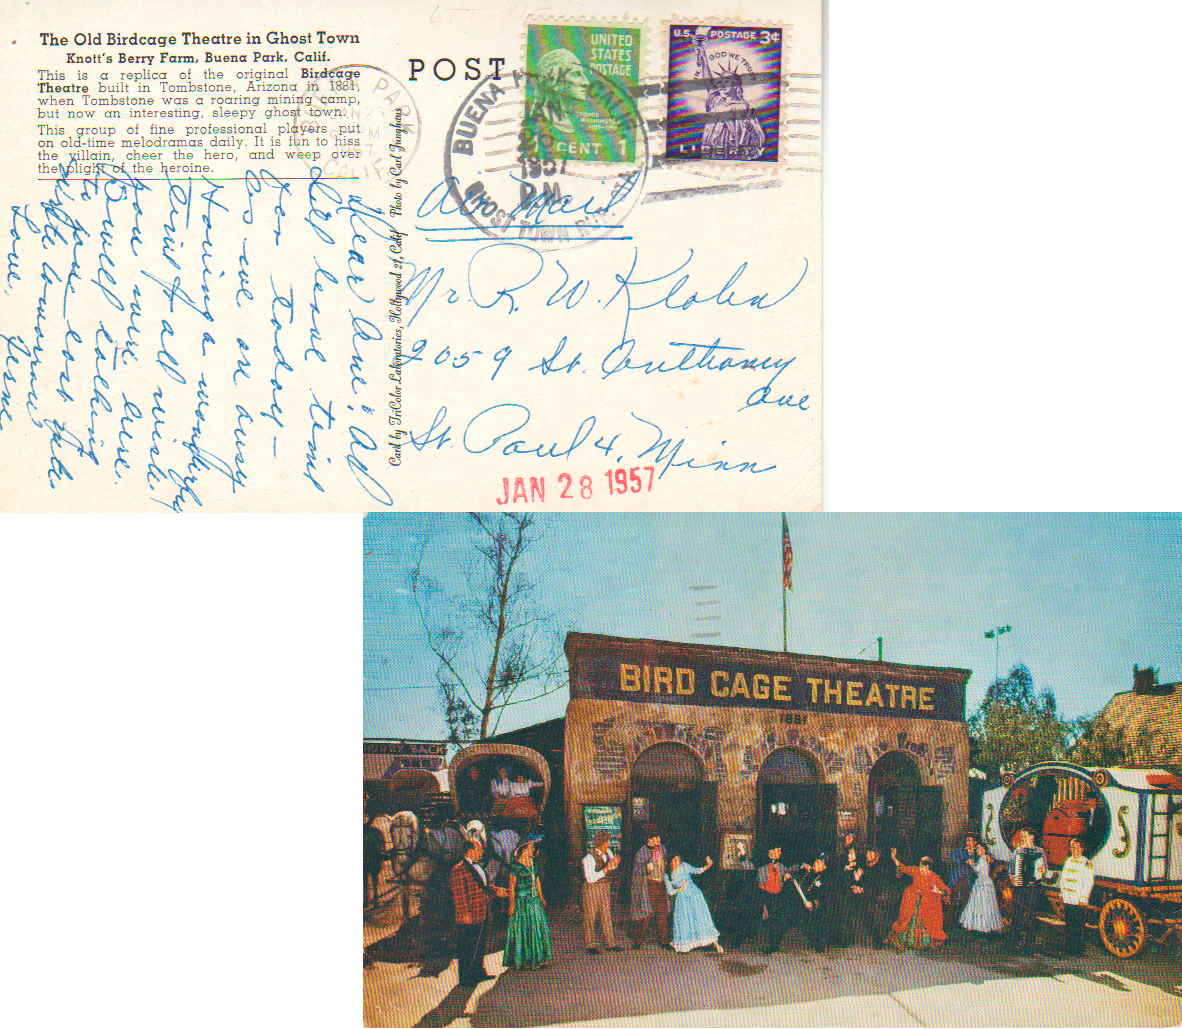 The Old Birdcage Theatre in Ghost Town
Knott's Berry Farm, Buena Park, Calif.
This is a replica of the original Birdcage
Theatre built in Tombstone, Arizona in 1881,
when Tombstone was a roaring mining camp,
but now an interesting, sleepy ghost town.
This group of fine professional players put
on old-time melodramas daily. It is fun to hiss
the villain, cheer the hero, and weep over
the plight of the heroine.
POST
UNITED
STATES
POSTAGE
CENT 1
U.S. POSTAGE 3¢
IN GOD WE TRUST
LIBERTY
BUENA PARK CALIF.
JAN
1957
P.M.
GHOST TOWN
Air Mail
Mr. R. W. Kloben
2059 St. Anthony
Ave
St. Paul 4, Minn
JAN 28 1957
Card by TriColor Laboratories, Hollywood 27, Calif Photo by Carl Junghans
Dear
leave
for today –
as we are
Having a wonderful
time & all wish
you were here.
Love,
BIRD CAGE THEATRE
1881